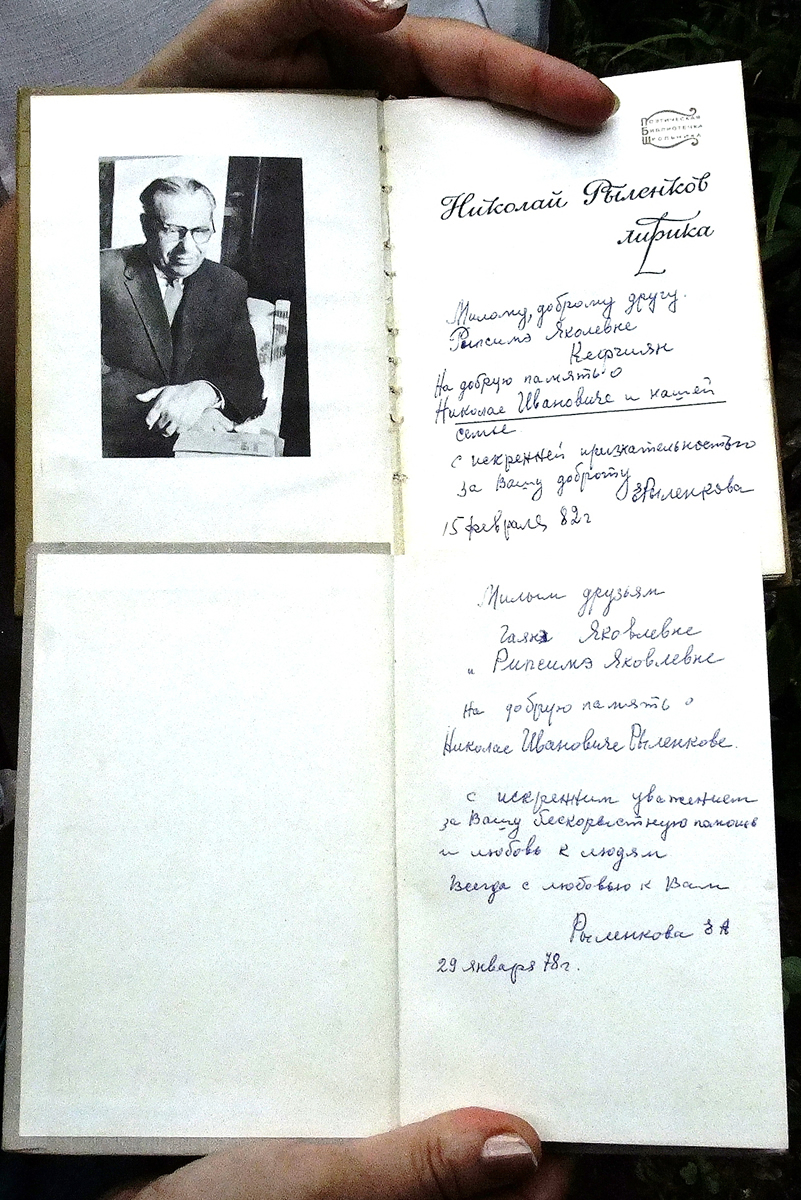 Поэтическая
Библиотечка
Школьника
Николай Рыленков
лирика
Милому, доброму другу.
Рипсимэ Яковлевне
Кефчиян
На добрую память о
Николае Ивановиче и нашей
семье
с искренней признательностью
за Вашу доброту
ЗРыленкова
15 февраля 82 г
Милым друзьям
Гаянэ Яковлевне
и Рипсимэ Яковлевне
На добрую память о
Николае Ивановиче Рыленкове.
с искренним уважением
за Вашу бескорыстную помощь
и любовь к людям
Всегда с любовью к Вам
Рыленкова З А
29 января 78 г.